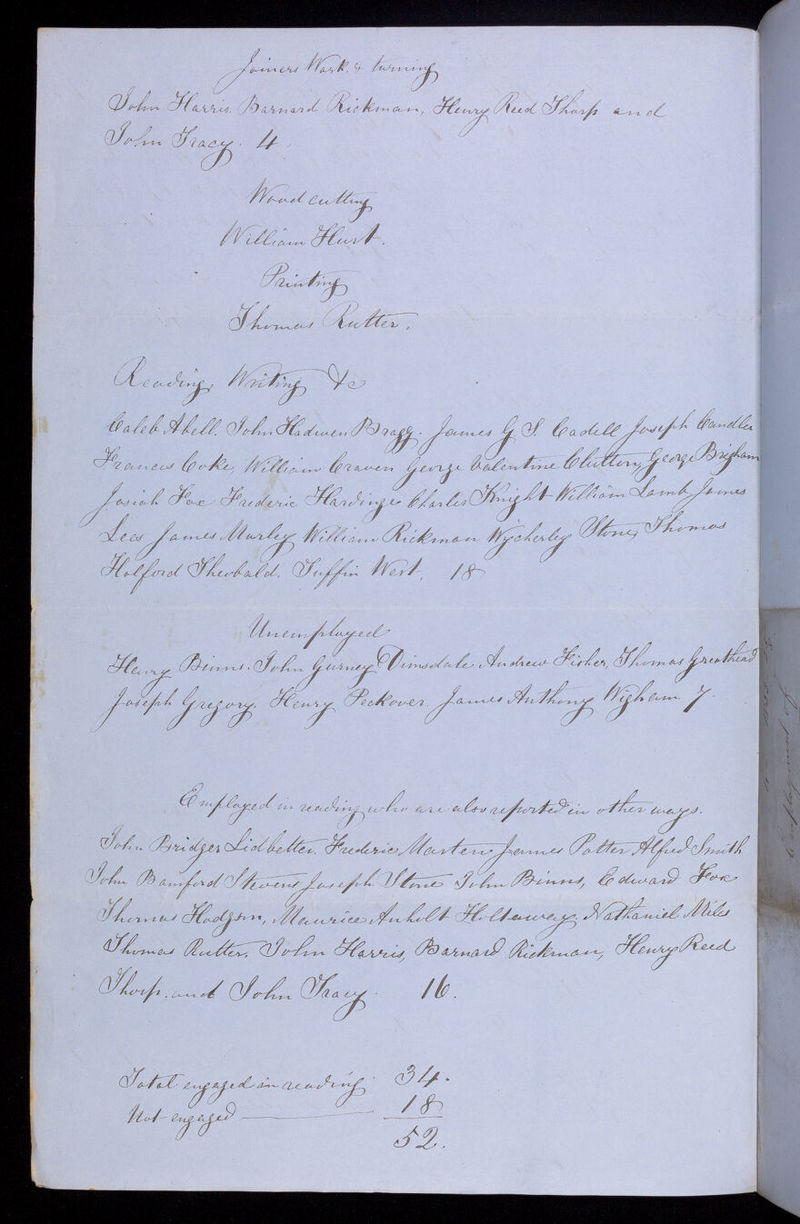 Joiners Work & turning
John Harris. Barnard Rickman, Henry Reed Thorp and
John Tracy. 4.
Wood cutting
William Hurt.
Printing
Thomas Rutter.
Reading, Writing &c
Caleb Abell. John Hadwen Bragg. James G S. Cadell Joseph Candler
Francis Coke, William Craven George Valentine Cluttony George Brigham
Josiah Fox Frederic Hardinge Charles Knight William Lamb James
Lees James Marley William Rickman Wycherley Stone, Thomas
Holford Theobald. Tuffin West. 18
Unemployed
Henry Binns. John Gurney Dimsdale Andrew Fisher, Thomas Greathead
Joseph Gregory. Henry Peckover. James Anthony Wigham 7.
Employed in reading who are also reported in other ways.
John Bridger Lidbetter. Frederic Marten James Potter Alfred Smith
John Bamford Stevens Joseph Stone John Binns, Edward Fox
Thomas Hodgson, Maurice Anholt Holtaway, Nathaniel Miles
Thomas Rutter, John Harris, Barnard Rickman, Henry Reed
Thorp. and John Tracy. 16.
Total engaged in reading 34.
Not engaged 18
52.
employment of